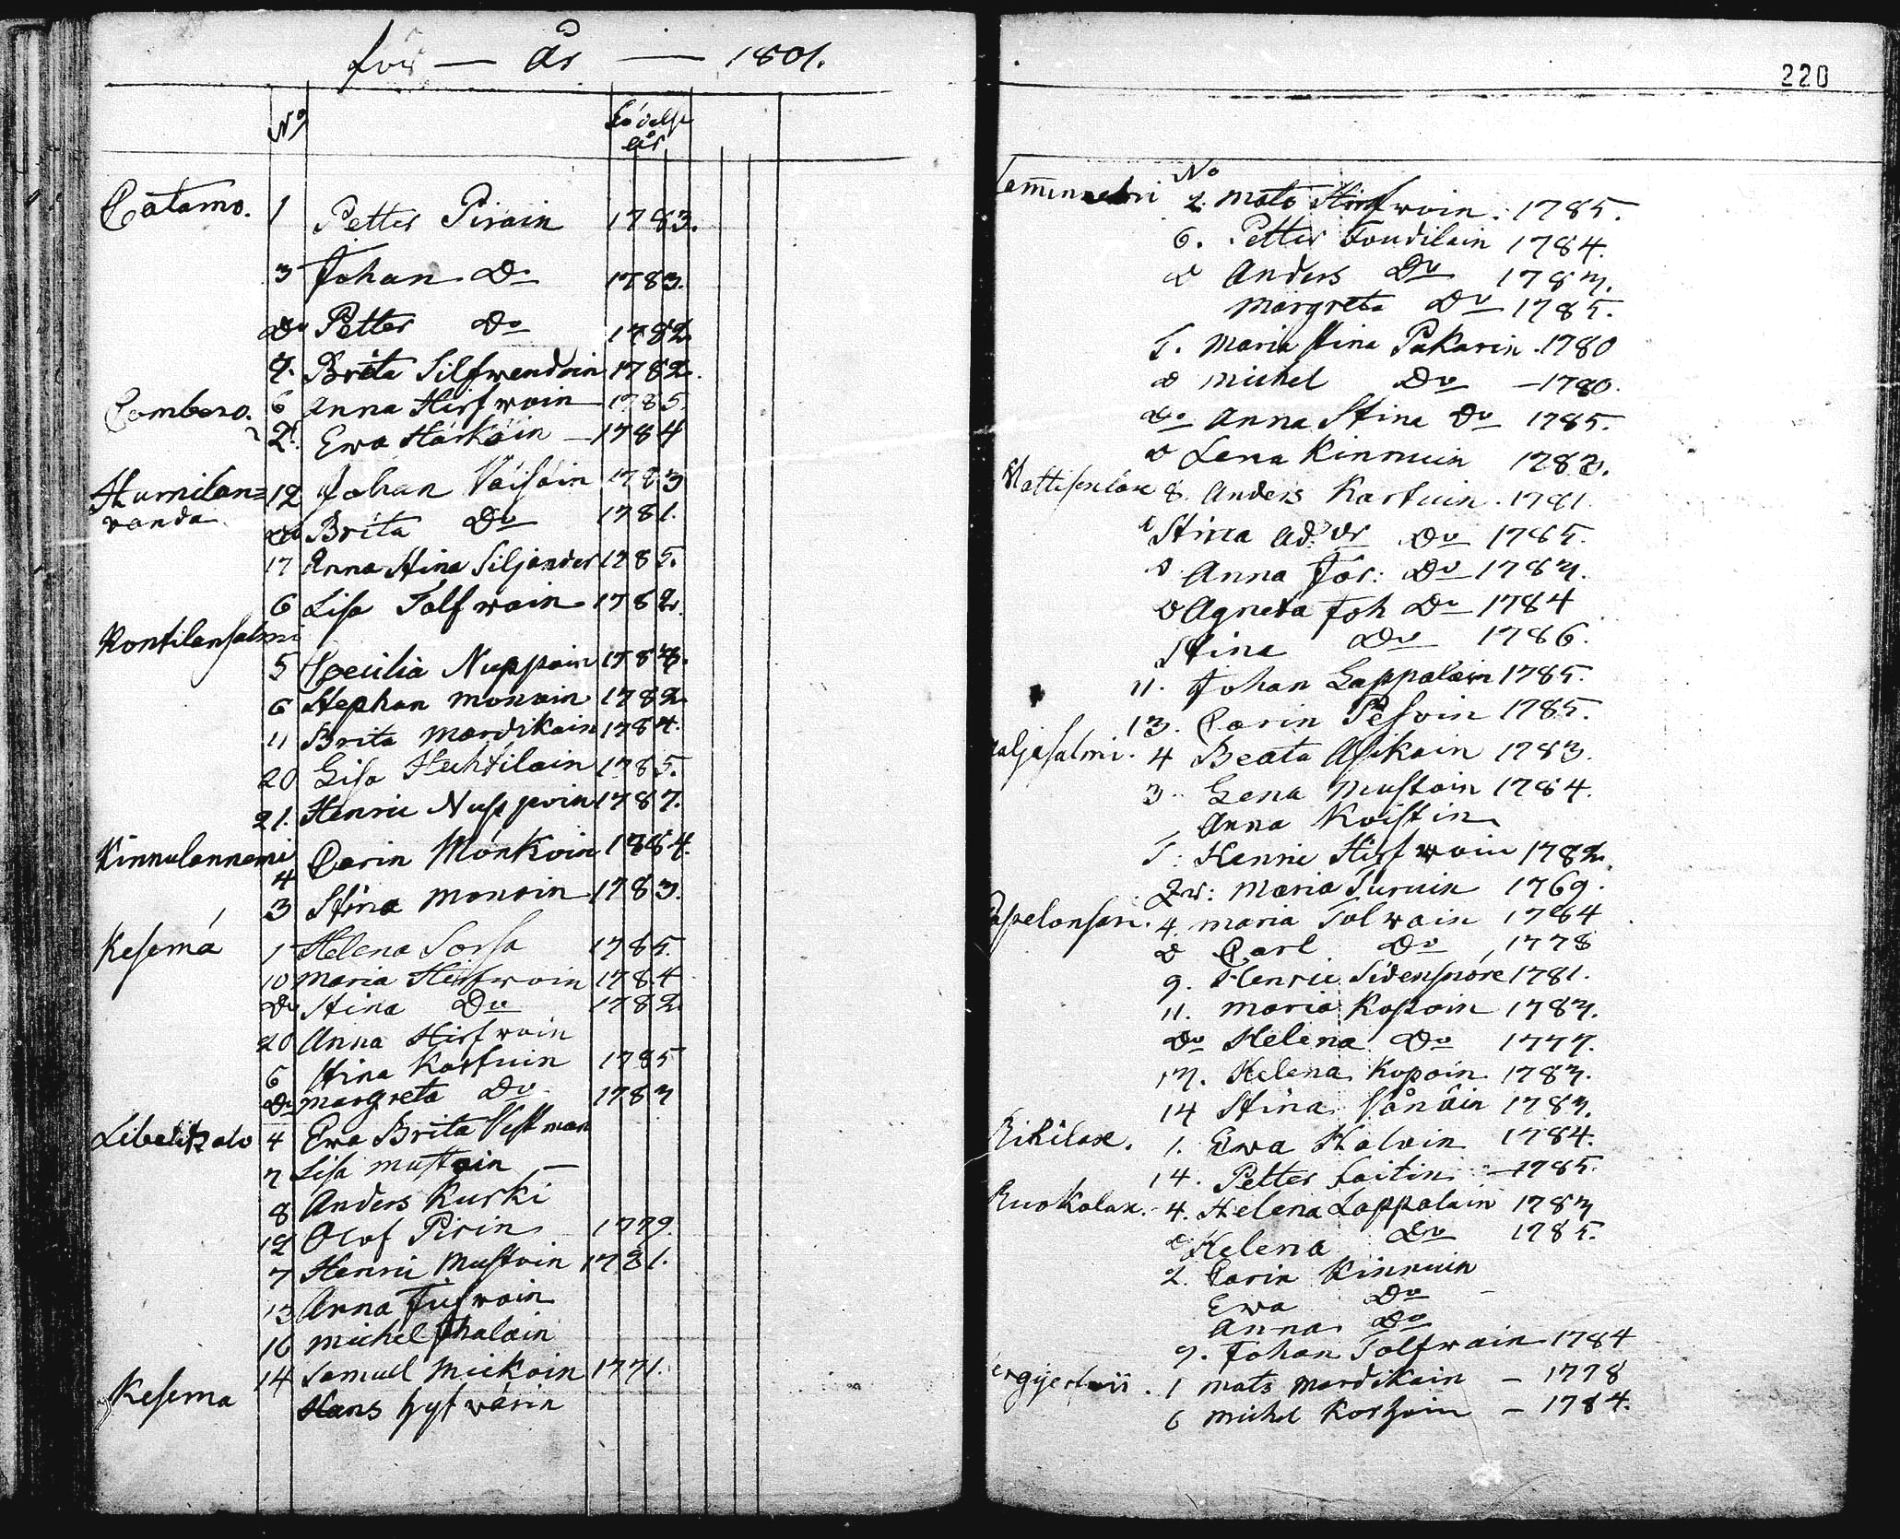 för — år — 1801.
No
födelse
år
Catamo. 1 Petter Pirain 1783.
3 Johan Do 1783.
Do Petter Do 1782
7. Brita Silfwendoin 1782.
Combero. 6 Anna Hirfwoin 1785.
2. Ewa Härköin 1784
Humilan= 12 Johan Väisäin 1783
vanda Do Brita Do 1781.
17 Anna Stina Siljander 1785.
6 Lisa Tolfwain 1782.
Kontilansalmi
5 Cecilia Nuppoin
6 Stephan monoin 1782
11 Brita Mardikain 1784.
20 Lisa Huhtilain 1785.
21. Henric Nuppoin 1787.
Kinnulanniemi 4 Carin Mönköin 1784.
3 Stina monoin 1783.
Kesemä 1 Helena Sorsa 1785.
10 Maria Hirfwoin 1784
Do Stina Do 1782
20 Anna Hirfwoin
6 Stina Karfuin 1785
Do margreta Do 1783
Libelitz alo 4 Ewa Brita Vestman
7 Lisa mustoin —
8 Anders Kurki
12 Olof Pirin 1779.
7 Henric Mustoin 1781.
13 Anna
16 michel Ihalain
14 Samuel Mickoin 1771.
Kesema Hans Hyfwärin
220
No
2. Mats Hirfwoin. 1785.
6. Petter Toudilain 1784.
D Anders Do 1783.
Margreta Do 1785.
5. Maria Stina Pakarin. 1780
D Michel Do — 1780.
Do Anna Stina Do 1785.
D Lena Kinnuin 1782.
8. Anders Karfuin. 1781.
Stina Do 1785.
D Anna Do 1783.
D Agneta Joh Do 1784
Stina Do 1786.
11. Johan Lappalain 1785.
13. Carin Pesoin 1785.
aljasalmi. 4 Beata Asikain 1783.
3. Lena Mustoin 1784.
Anna Koistin
5. Henric Hirfwoin 1782.
Maria Turuin 1769.
4. maria Tolwain 1784
D Carl Do 1778
9. Henric Sidensnöre 1781.
11. Maria Kopoin 1783.
Do Helena Do 1777.
13. Helena Kopoin 1783.
14 Stina Vänäin 1783.
1. Ewa Haloin 1784.
14. Petter Laitin — 1785.
Ruokolax. 4. Helena Lappalain 1783
Helena Do 1785.
2. Carin Kinnuin
Ewa Do
Anna Do
9. Johan Tolfwain 1784
1 Mats Mardikain — 1778
6 Michel Korhoin — 1784.